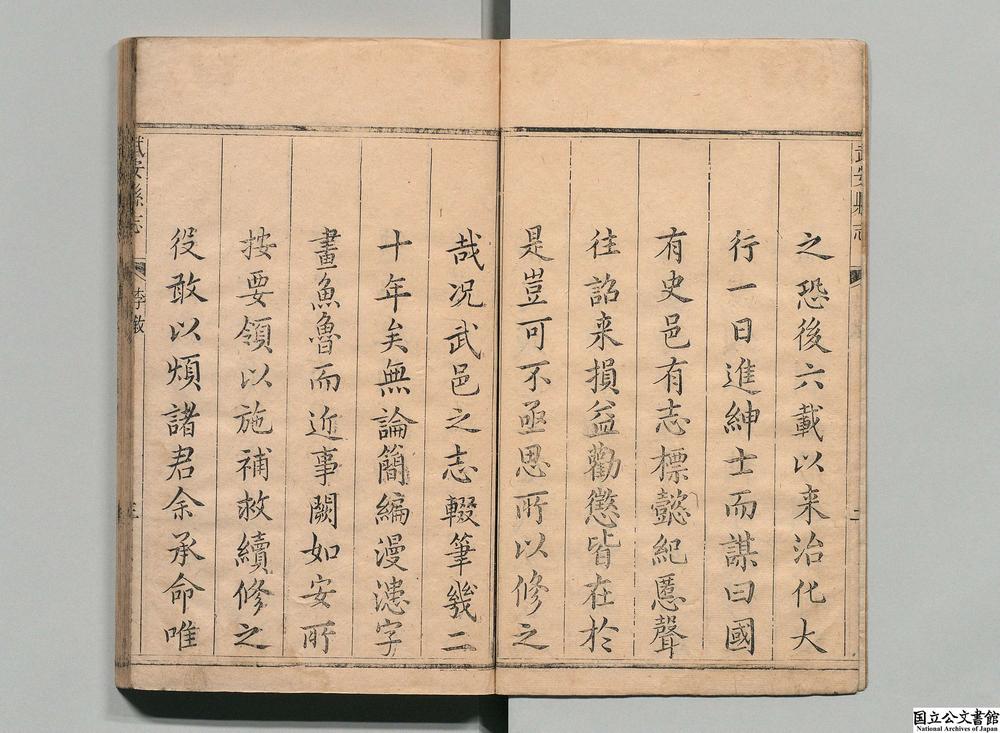 武安縣志
二
之恐後六載以来治化大
行一日進紳士而謀曰國
有史邑有志標懿紀慝聲
往詔来損益勸懲皆在於
是豈可不亟思所以修之
哉况武邑之志輟筆幾二
十年矣無論簡編漫漶字
畫魚魯而近事闕如安所
按要領以施補救續修之
役敢以煩諸君余承命唯
武安縣志
李敘
三
国立公文書館
National Archives of Japan